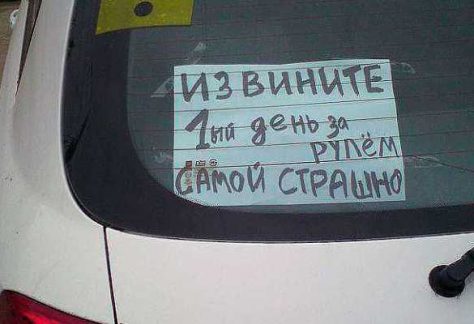 ИЗВИНИТЕ
1ый день за
РУЛЁМ
САМОЙ СТРАШНО